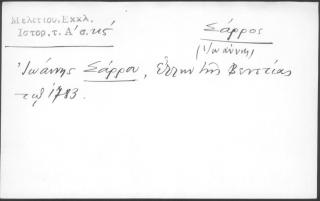 Μελετίου, Εκκλ.
Ιστορ. τ. Α' σ. κς'
Σάρρος
(Ἰωάννης)
Ἰωάννης Σάρρου, ἐκ τῆς Βενετίας
τῷ 1783.